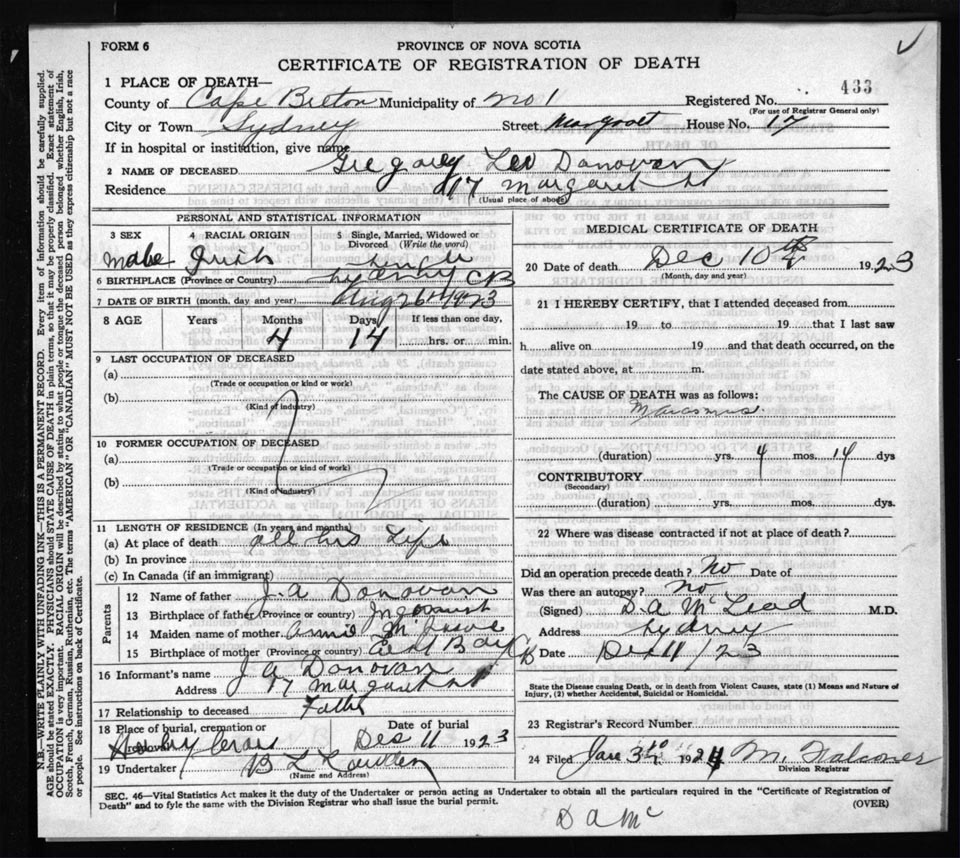 FORM 6
PROVINCE OF NOVA SCOTIA
CERTIFICATE OF REGISTRATION OF DEATH
433
1 PLACE OF DEATH—
County of Cape Breton Municipality of No 1 Registered No.
(For use of Registrar General only)
City or Town Sydney Street Margaret House No. 17
If in hospital or institution, give name
2 NAME OF DECEASED Gregory Leo Donovan
Residence 17 Margaret St
(Usual place of abode)
PERSONAL AND STATISTICAL INFORMATION
3 SEX 4 RACIAL ORIGIN 5 Single, Married, Widowed or
Divorced (Write the word)
Male Irish Single
6 BIRTHPLACE (Province or Country) Sydney CB
7 DATE OF BIRTH (month, day and year) Aug 26th 1923
8 AGE Years Months Days If less than one day,
4 14 hrs. or min.
9 LAST OCCUPATION OF DECEASED
(a)
(Trade or occupation or kind or work)
(b)
(Kind of industry)
10 FORMER OCCUPATION OF DECEASED
(a)
(Trade or occupation or kind of work)
(b)
(Kind of industry)
11 LENGTH OF RESIDENCE (In years and months)
(a) At place of death all his Life
(b) In province
(c) In Canada (if an immigrant)
Parents
12 Name of father J. A Donovan
13 Birthplace of father (Province or country)
14 Maiden name of mother Annie
15 Birthplace of mother (Province or country)
16 Informant's name J A Donovan
Address 17 Margaret St
17 Relationship to deceased Father
18 Place of burial, cremation or Date of burial
removal Holy Cross Dec 11 1923
19 Undertaker B L
(Name and Address)
MEDICAL CERTIFICATE OF DEATH
20 Date of death Dec 10th 1923
(Month, day and year)
21 I HEREBY CERTIFY, that I attended deceased from
19 to 19 that I last saw
h alive on 19 and that death occurred, on the
date stated above, at m.
The CAUSE OF DEATH was as follows:
Marasmus
(duration) yrs. 4 mos. 14 dys
CONTRIBUTORY
(Secondary)
(duration) yrs. mos. dys.
22 Where was disease contracted if not at place of death?
Did an operation precede death? No Date of
Was there an autopsy? No
(Signed) D. A McLeod M.D.
Address Sydney
Date Dec 11/23
State the Disease causing Death, or in death from Violent Causes, state (1) Means and Nature of
Injury, (2) whether Accidental, Suicidal or Homicidal.
23 Registrar's Record Number
24 Filed Jan 3rd 1924 M. Falconer
Division Registrar
SEC. 46—Vital Statistics Act makes it the duty of the Undertaker or person acting as Undertaker to obtain all the particulars required in the "Certificate of Registration of
Death" and to fyle the same with the Division Registrar who shall issue the burial permit. (OVER)
D A Mc
N.B.—WRITE PLAINLY WITH UNFADING INK—THIS IS A PERMANENT RECORD. Every item of information should be carefully supplied.
AGE should be stated EXACTLY. PHYSICIANS should STATE CAUSE OF DEATH in plain terms, so that it may be properly classified. Exact statement of
OCCUPATION is very important. RACIAL ORIGIN will be described by stating to what people or tongue the deceased person belonged whether English, Irish,
Scotch, French, German, Russian, Ruthenian, etc. The terms "AMERICAN" OR "CANADIAN" MUST NOT BE USED as they express citizenship but not a race
or people. See instructions on back of Certificate.